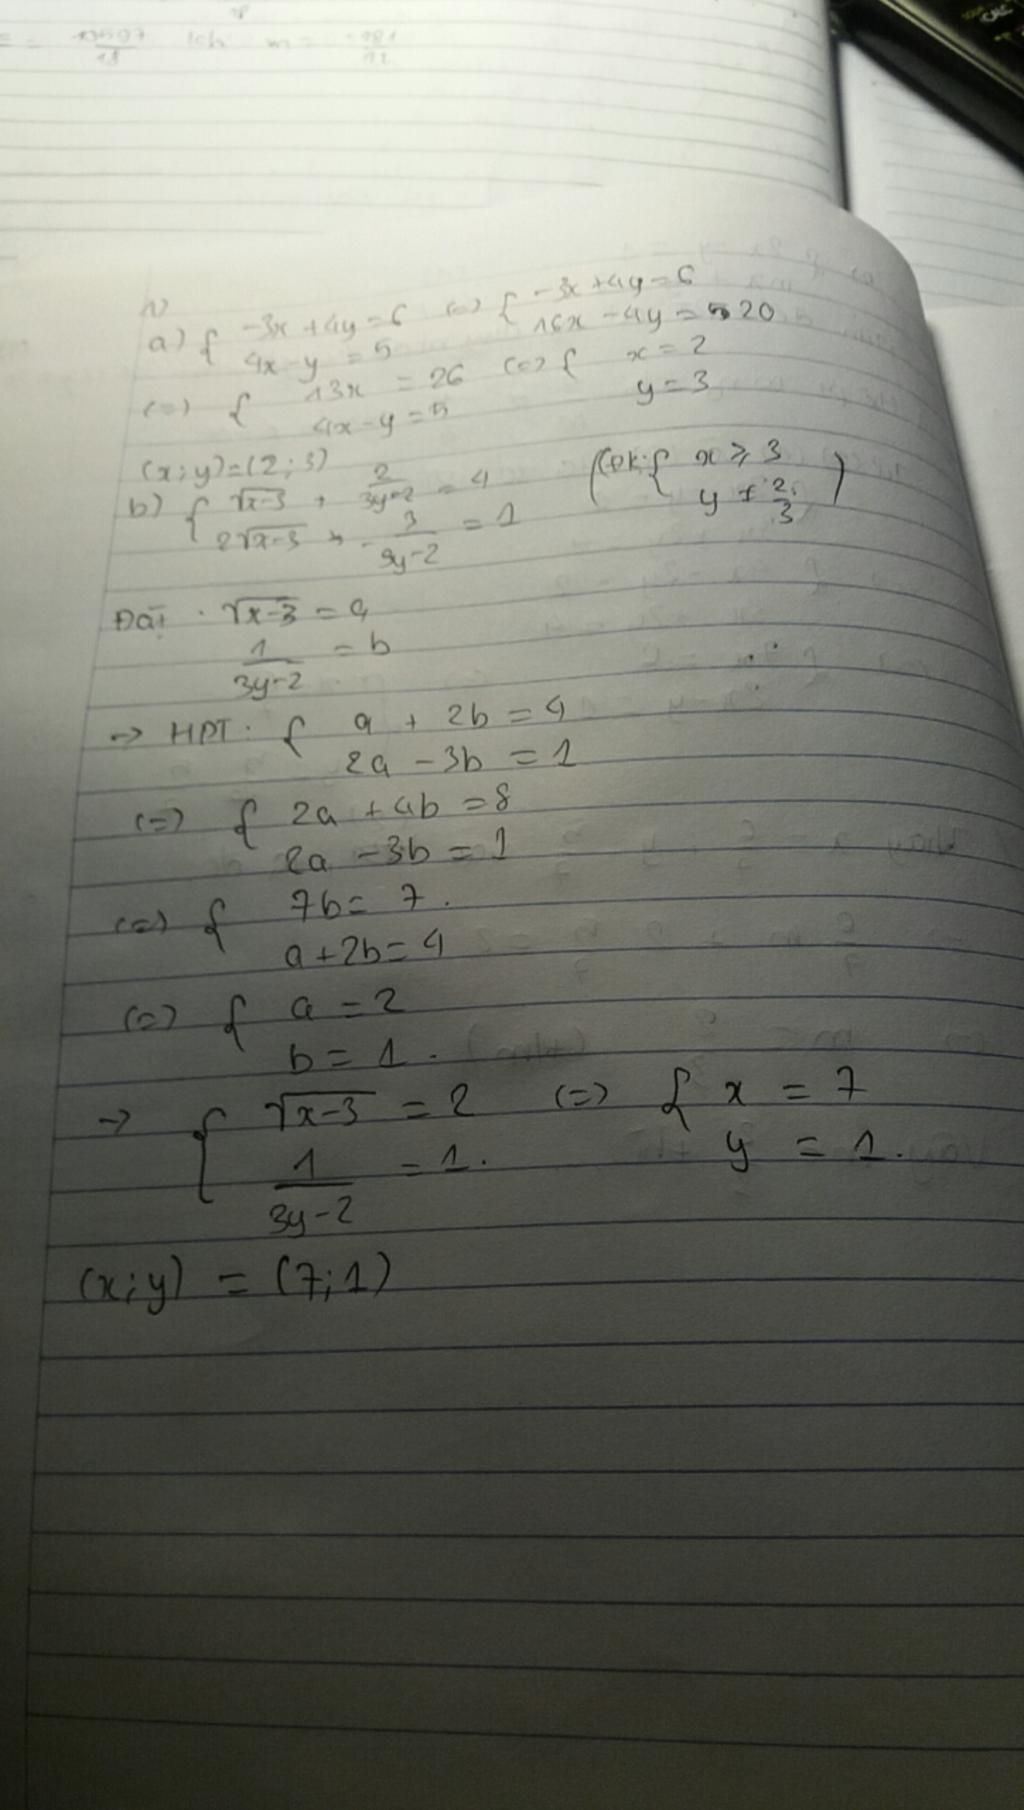 a) { -3x + 4y = 6 (=) { -3x + 4y = 6
4x - y = 5 16x - 4y = 20
(=) { 13x = 26 (=) { x = 2
4x - y = 5 y = 3
(x; y) = (2; 3)
b) { √x-3 + 2/3y-2 = 4 (ĐK: { x ≥ 3
2√x-3 - 3/3y-2 = 1 y ≠ 2/3 )
Đặt √x-3 = a
1/3y-2 = b
-> HPT: { a + 2b = 4
2a - 3b = 1
(=) { 2a + 4b = 8
2a - 3b = 1
(=) { 7b = 7.
a + 2b = 4
(=) { a = 2
b = 1.
-> { √x-3 = 2 (=) { x = 7
1/3y-2 = 1. y = 1.
(x; y) = (7; 1)